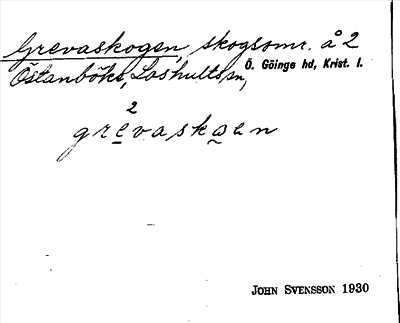 Grevaskogen, skogsomr. å 2
Östanböke, Loshults sn,
Ö. Göinge hd, Krist. l.
2
grevaskωen
JOHN SVENSSON 1930